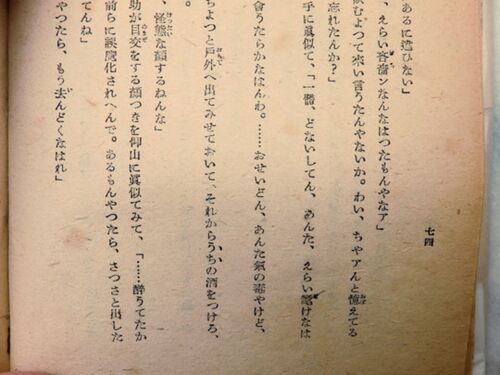 あるに違ひない」
、えらい吝嗇ンなんなはつたもんやなア」
飮むよつて來い言うたんやないか。わい、ちやアんと憶えてる
忘れたんか？」
手に眞似て、「一體、どないしてん、あんた、えらい電けなは
會うたらかなはんわ。……おせいどん、あんた氣の毒やけど、
ちよつと戸外へ出てみせておいて、それからうちの酒をつける、
、怪態な顏するねんな」
助が目交をする顏つきを仰山に眞似てみて、「……醉うてたか
てんね」
前らに誤魔化されへんで。あるもんやつたら、さつさと出した
やつたら、もう去んどくなはれ」
七四